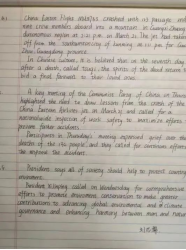 China Eastern Flight MU5735 crashed with 123 passengers and
nine crew members aboard into a mountain in Guangxi Zhuang
autonomous region at 2:21 p.m. on March 21. The jet had taken
off from the
Guangdong province.
In Chinese culture, it is believed that on the seventh day
after a death, called "touqi", the spirits of the dead return to
bid a final farewell to their loved ones.
A key meeting of the Communist Party of China on Thursday
highlighted the need to draw lessons from the crash of the
China Eastern Airlines jet on March 21 and called for a
nationwide inspection of work safety to
prevent further accidents.
Participants in Thursday's meeting expressed grief over the
deaths of the 132 people and they called for continuous efforts
President says all of society should help to protect country's
environment.
President Xi Jinping called on Wednesday for comprehensive
efforts to promote environment conservation to make greater
contributions to advancing global environmental and climate
governance and enhancing harmony between man and nature.